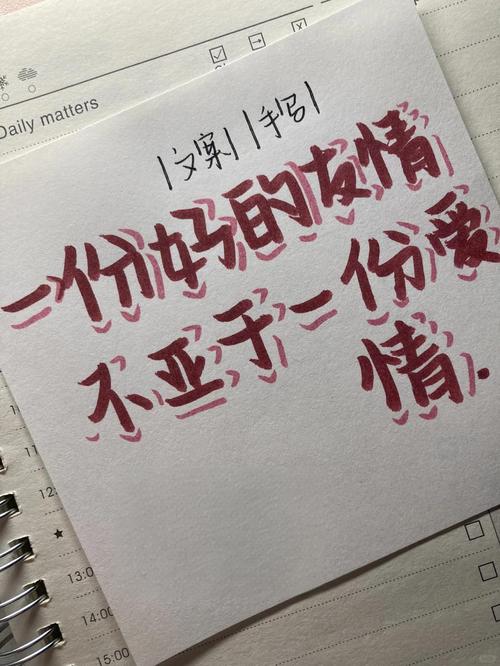 Daily matters
|文案| |手写|
一份好的友情
不亚于一份爱
情.
12:
13:0
14:00
15:00